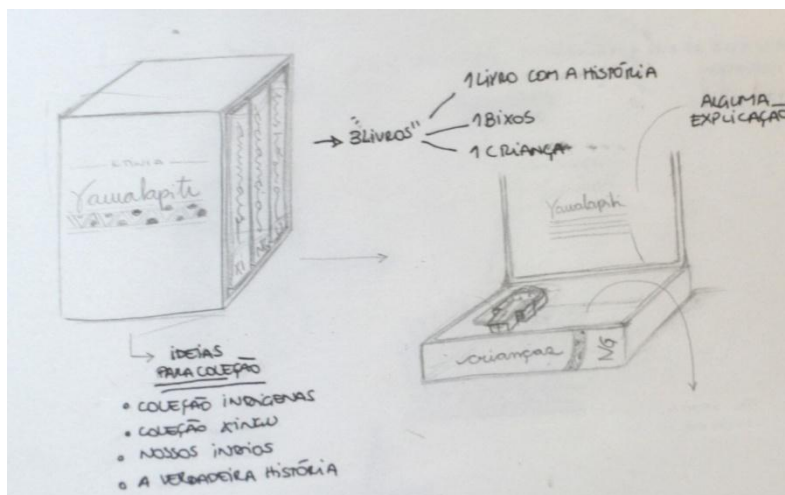 ETNIA
Yawalapiti
XI
NG
U
"3 LIVROS"
1 LIVRO COM A HISTÓRIA
1 BIXOS
1 CRIANÇA
ALGUMA
EXPLICAÇÃO
Yawalapiti
crianças
NG
IDEIAS
PARA COLEÇÃO
• COLEÇÃO INDÍGENAS
• COLEÇÃO XINGU
• NOSSOS INDIOS
• A VERDADEIRA HISTÓRIA